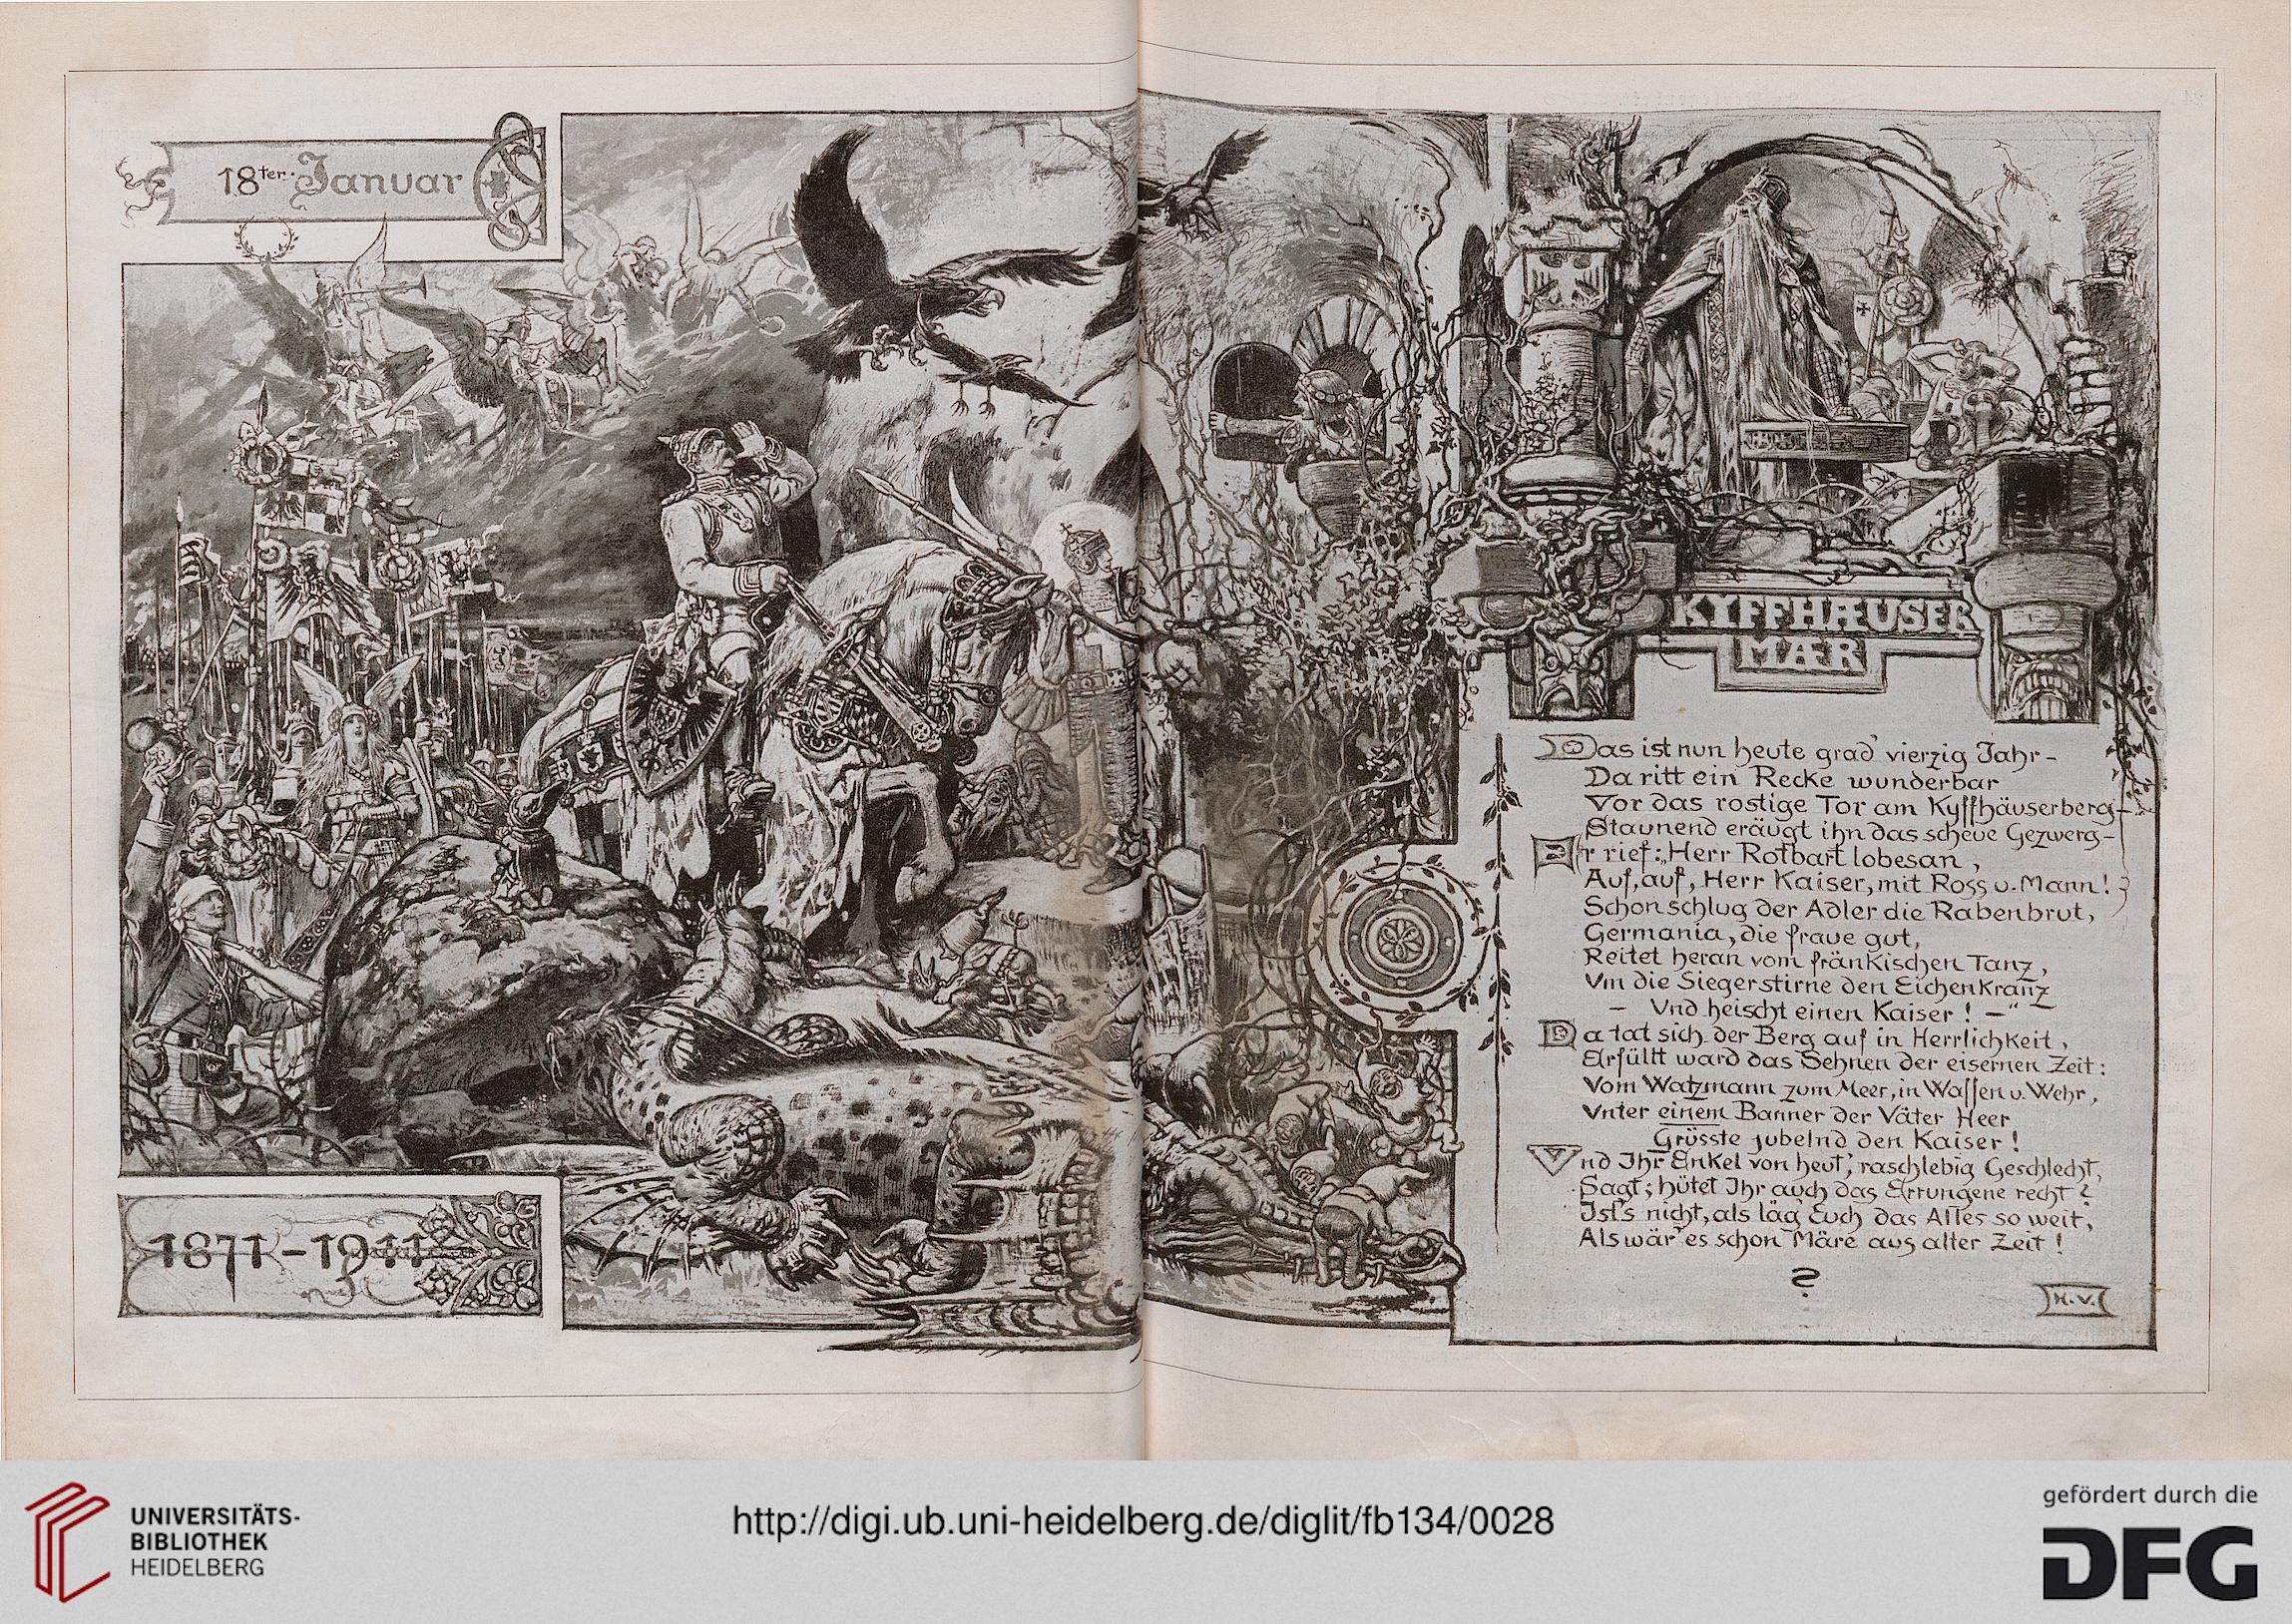 18ter. Januar
1871-1911
KYFFHÆUSER
MÆR
Das ist nun heute grad' vierzig Jahr -
Da ritt ein Recke wunderbar
Vor das rostige Tor am Kyffhäuserberg -
Staunend eräugt ihn das scheue Gezwerg -
Er rief: „Herr Rotbart lobesan,
Auf, auf, Herr Kaiser, mit Ross u. Mann!
Schon schlug der Adler die Rabenbrut,
Germania, die fraue gut,
Reitet heran vom fränkischen Tanz,
Um die Siegerstirne den Eichenkranz
- Und heischt einen Kaiser! -"
Da tat sich der Berg auf in Herrlichkeit,
Erfüllt ward das Sehnen der eisernen Zeit:
Vom Watzmann zum Meer, in Waffen u. Wehr,
Unter einem Banner der Väter Heer
Grüsste jubelnd den Kaiser!
Und Ihr Enkel von heut', raschlebig Geschlecht,
Sagt; hütet Ihr auch das Errungene recht?
Ist's nicht, als läg' Euch das Alles so weit,
Als wär' es schon Märe aus alter Zeit!
?
H.V.
UNIVERSITÄTS-
BIBLIOTHEK
HEIDELBERG
http://digi.ub.uni-heidelberg.de/diglit/fb134/0028
gefördert durch die
DFG